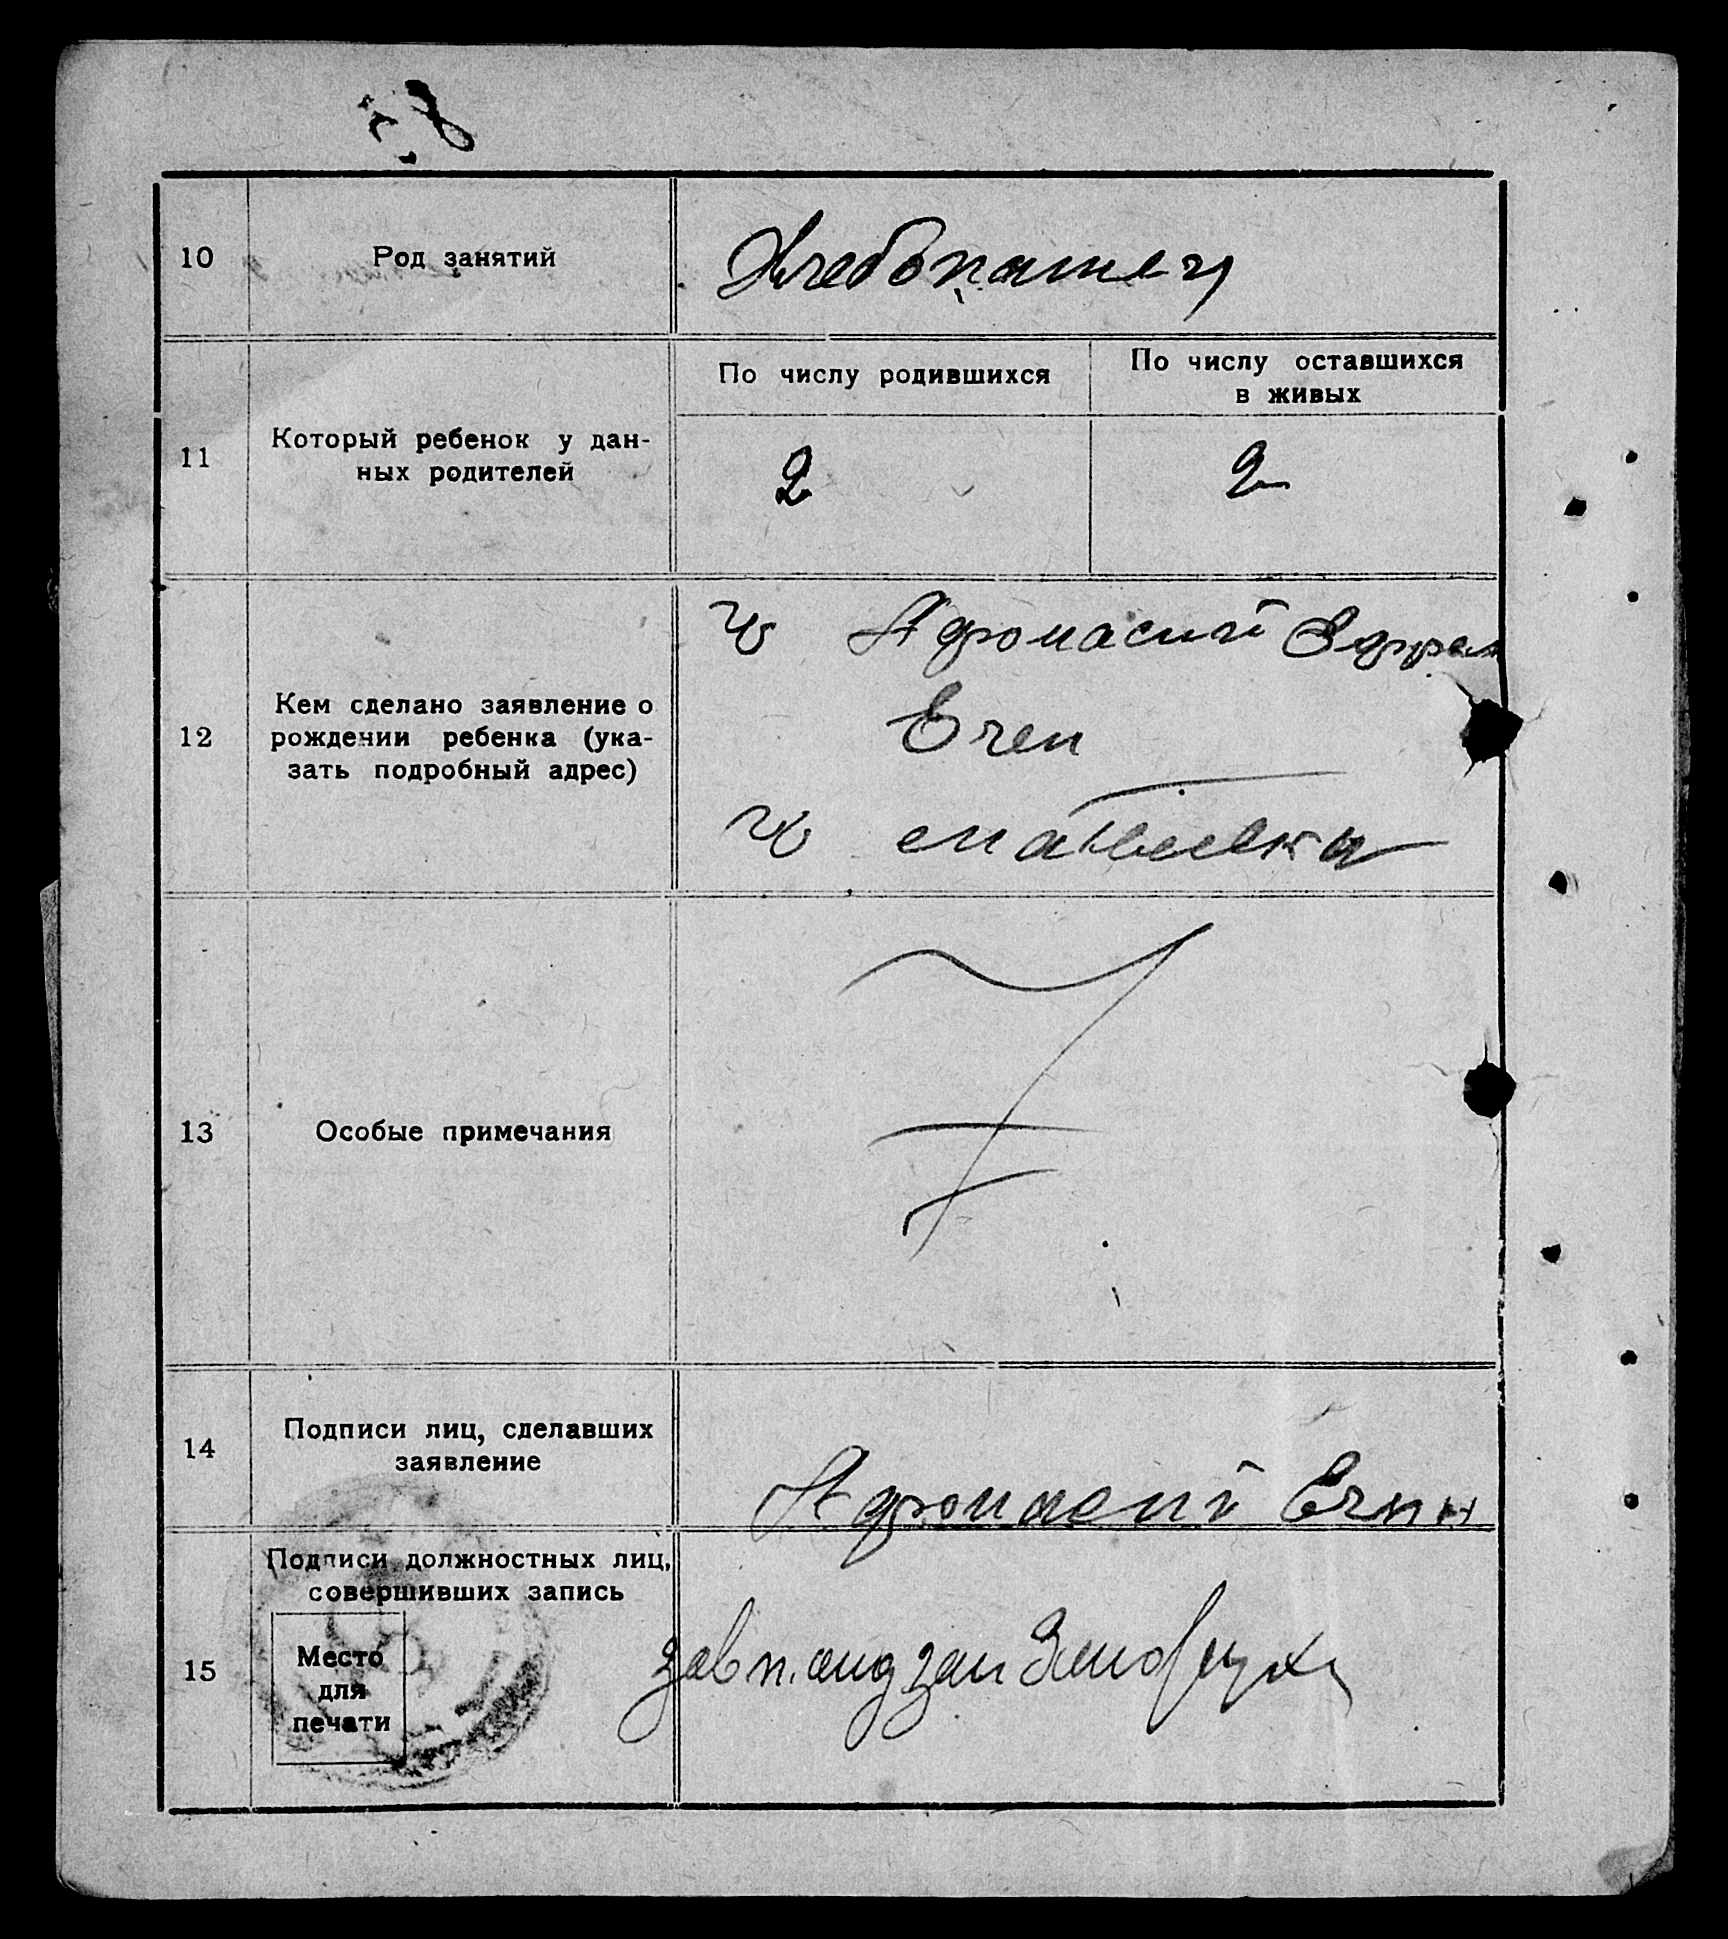 10
Род занятий
Хлебопашец
11
Который ребенок у дан-
ных родителей
По числу родившихся
По числу оставшихся
в живых
2
2
12
Кем сделано заявление о
рождении ребенка (ука-
зать подробный адрес)
Афонасий
13
Особые примечания
14
Подписи лиц, сделавших
заявление
Афонасий
15
Подписи должностных лиц,
совершивших запись
Место
для
печати